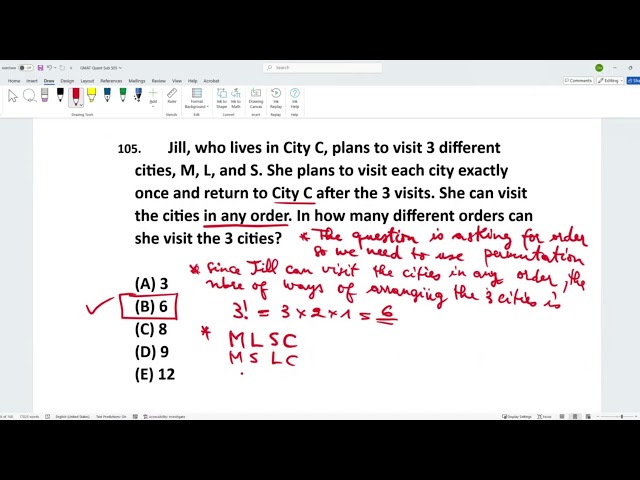 GMAT Quant Sub 505
Search
Home Insert Draw Design Layout References Mailings Review View Help Acrobat
Comments Editing
Ruler Format Background Ink to Shape Ink to Math Drawing Canvas Ink Replay Ink Help
Add
Drawing Tools Convert Insert Replay Help
105. Jill, who lives in City C, plans to visit 3 different
cities, M, L, and S. She plans to visit each city exactly
once and return to City C after the 3 visits. She can visit
the cities in any order. In how many different orders can
she visit the 3 cities? * The question is asking for order
so we need to use permutation
(A) 3 * Since Jill can visit the cities in any order, the
nbre of ways of arranging the 3 cities is
(B) 6
3! = 3 × 2 × 1 = 6
(C) 8 *
M L S C
(D) 9 M S L C
(E) 12
English (United States) Text Predictions: On Accessibility: Investigate Display Settings Focus